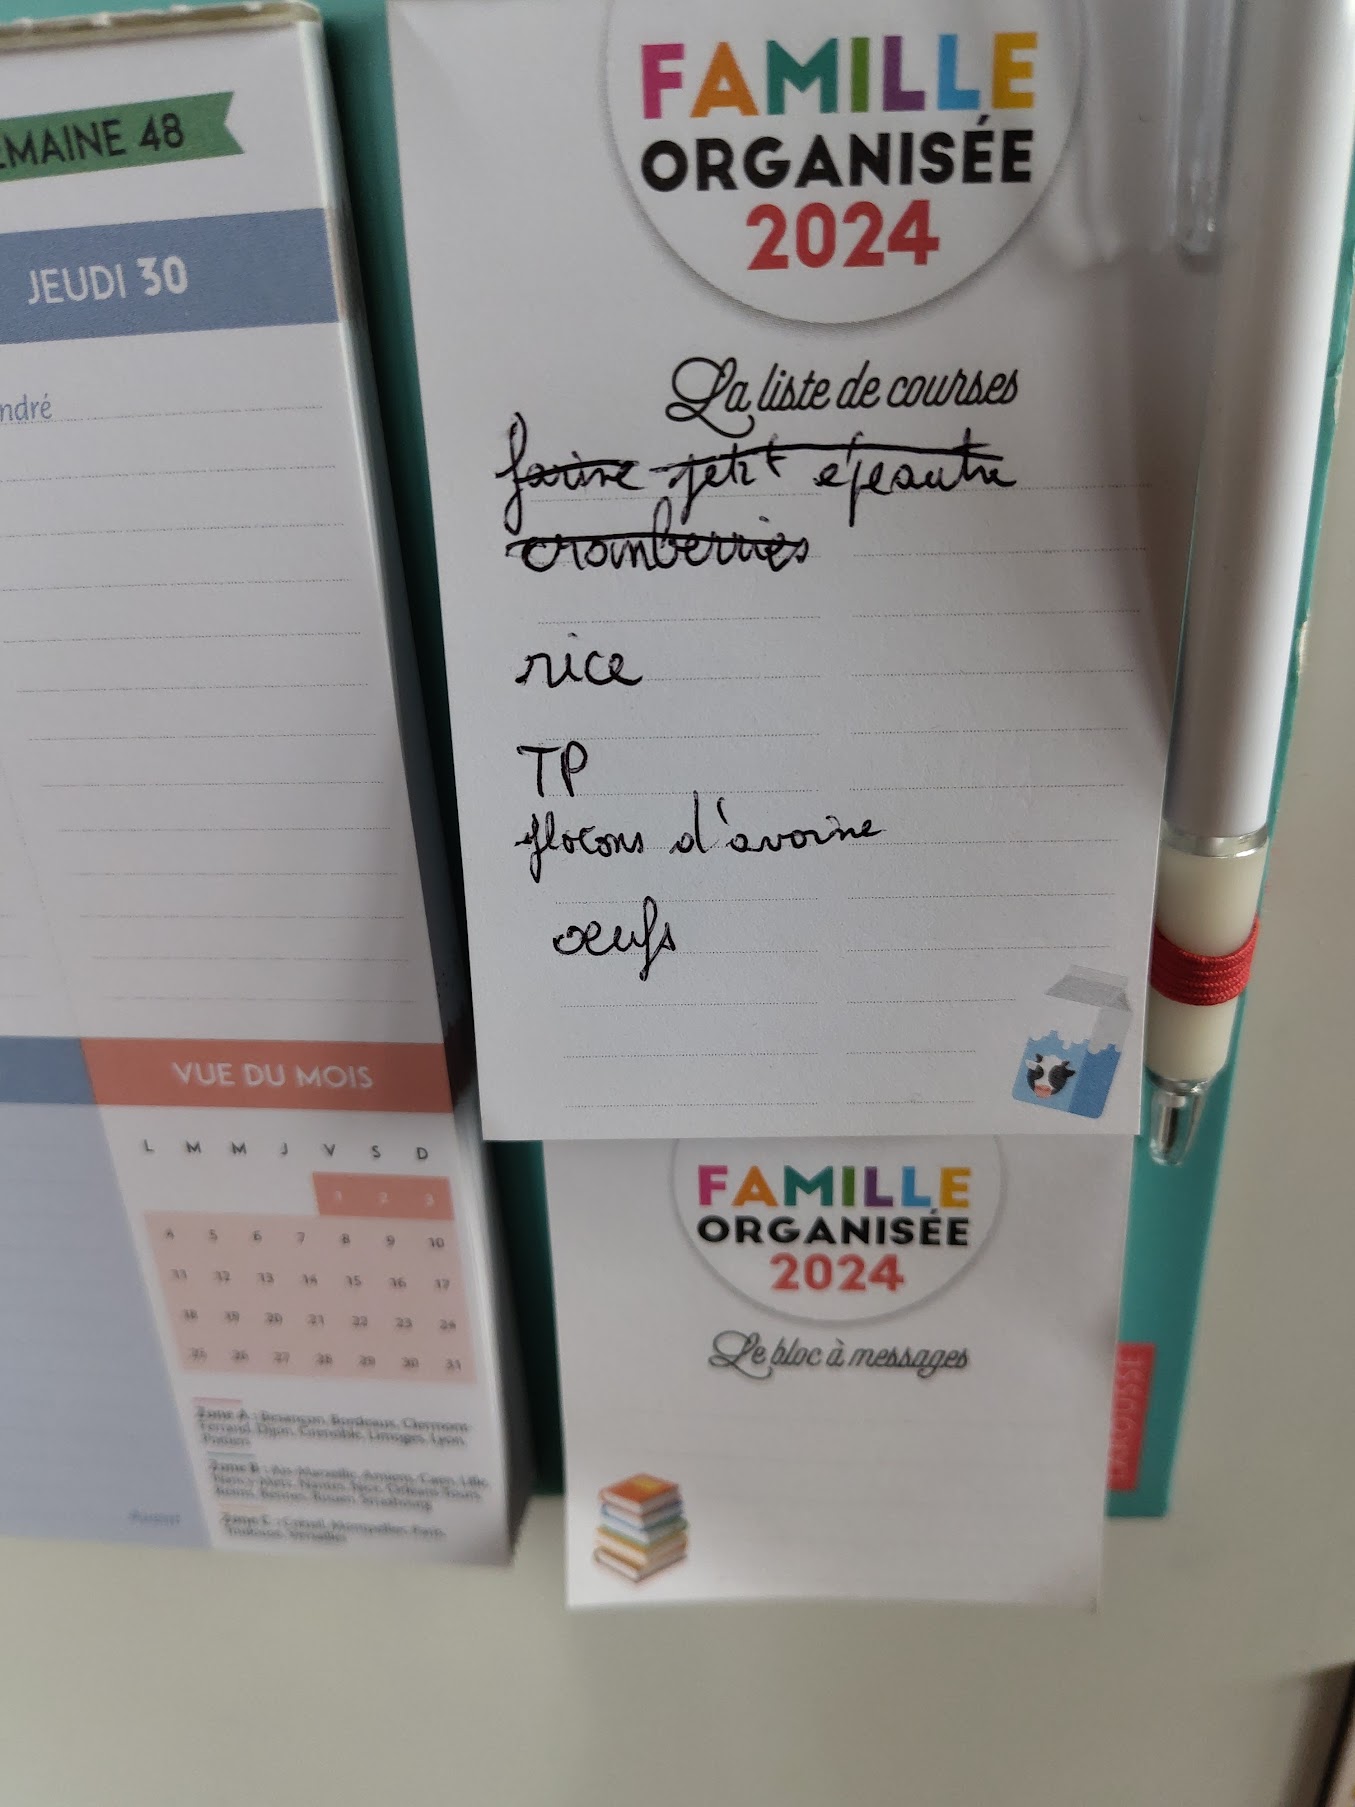 EMAINE 48
JEUDI 30
ndré
VUE DU MOIS
L M M J V S D
1 2 3
4 5 6 7 8 9 10
11 12 13 14 15 16 17
18 19 20 21 22 23 24
25 26 27 28 29 30 31
Zone A : Besançon, Bordeaux, Clermont-
Ferrand, Dijon, Grenoble, Limoges, Lyon,
Poitiers
Zone B : Aix-Marseille, Amiens, Caen, Lille,
Nancy-Metz, Nantes, Nice, Orléans-Tours,
Reims, Rennes, Rouen, Strasbourg
Zone C : Créteil, Montpellier, Paris,
Toulouse, Versailles
FAMILLE
ORGANISÉE
2024
La liste de courses
farine petit épeautre
cranberries
rice
TP
flocons d'avoine
œufs
FAMILLE
ORGANISÉE
2024
Le bloc à messages
LAROUSSE